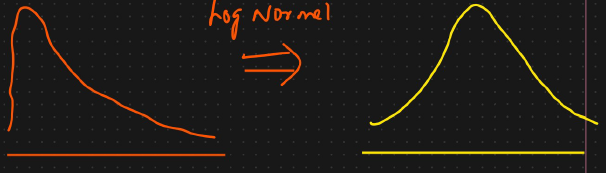 Log Normal